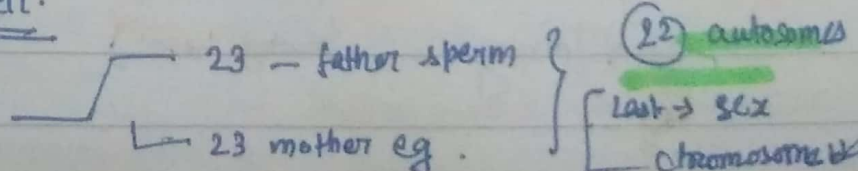 23 – father sperm
23 mother eg.
22 autosomes
Last → sex
chromosome